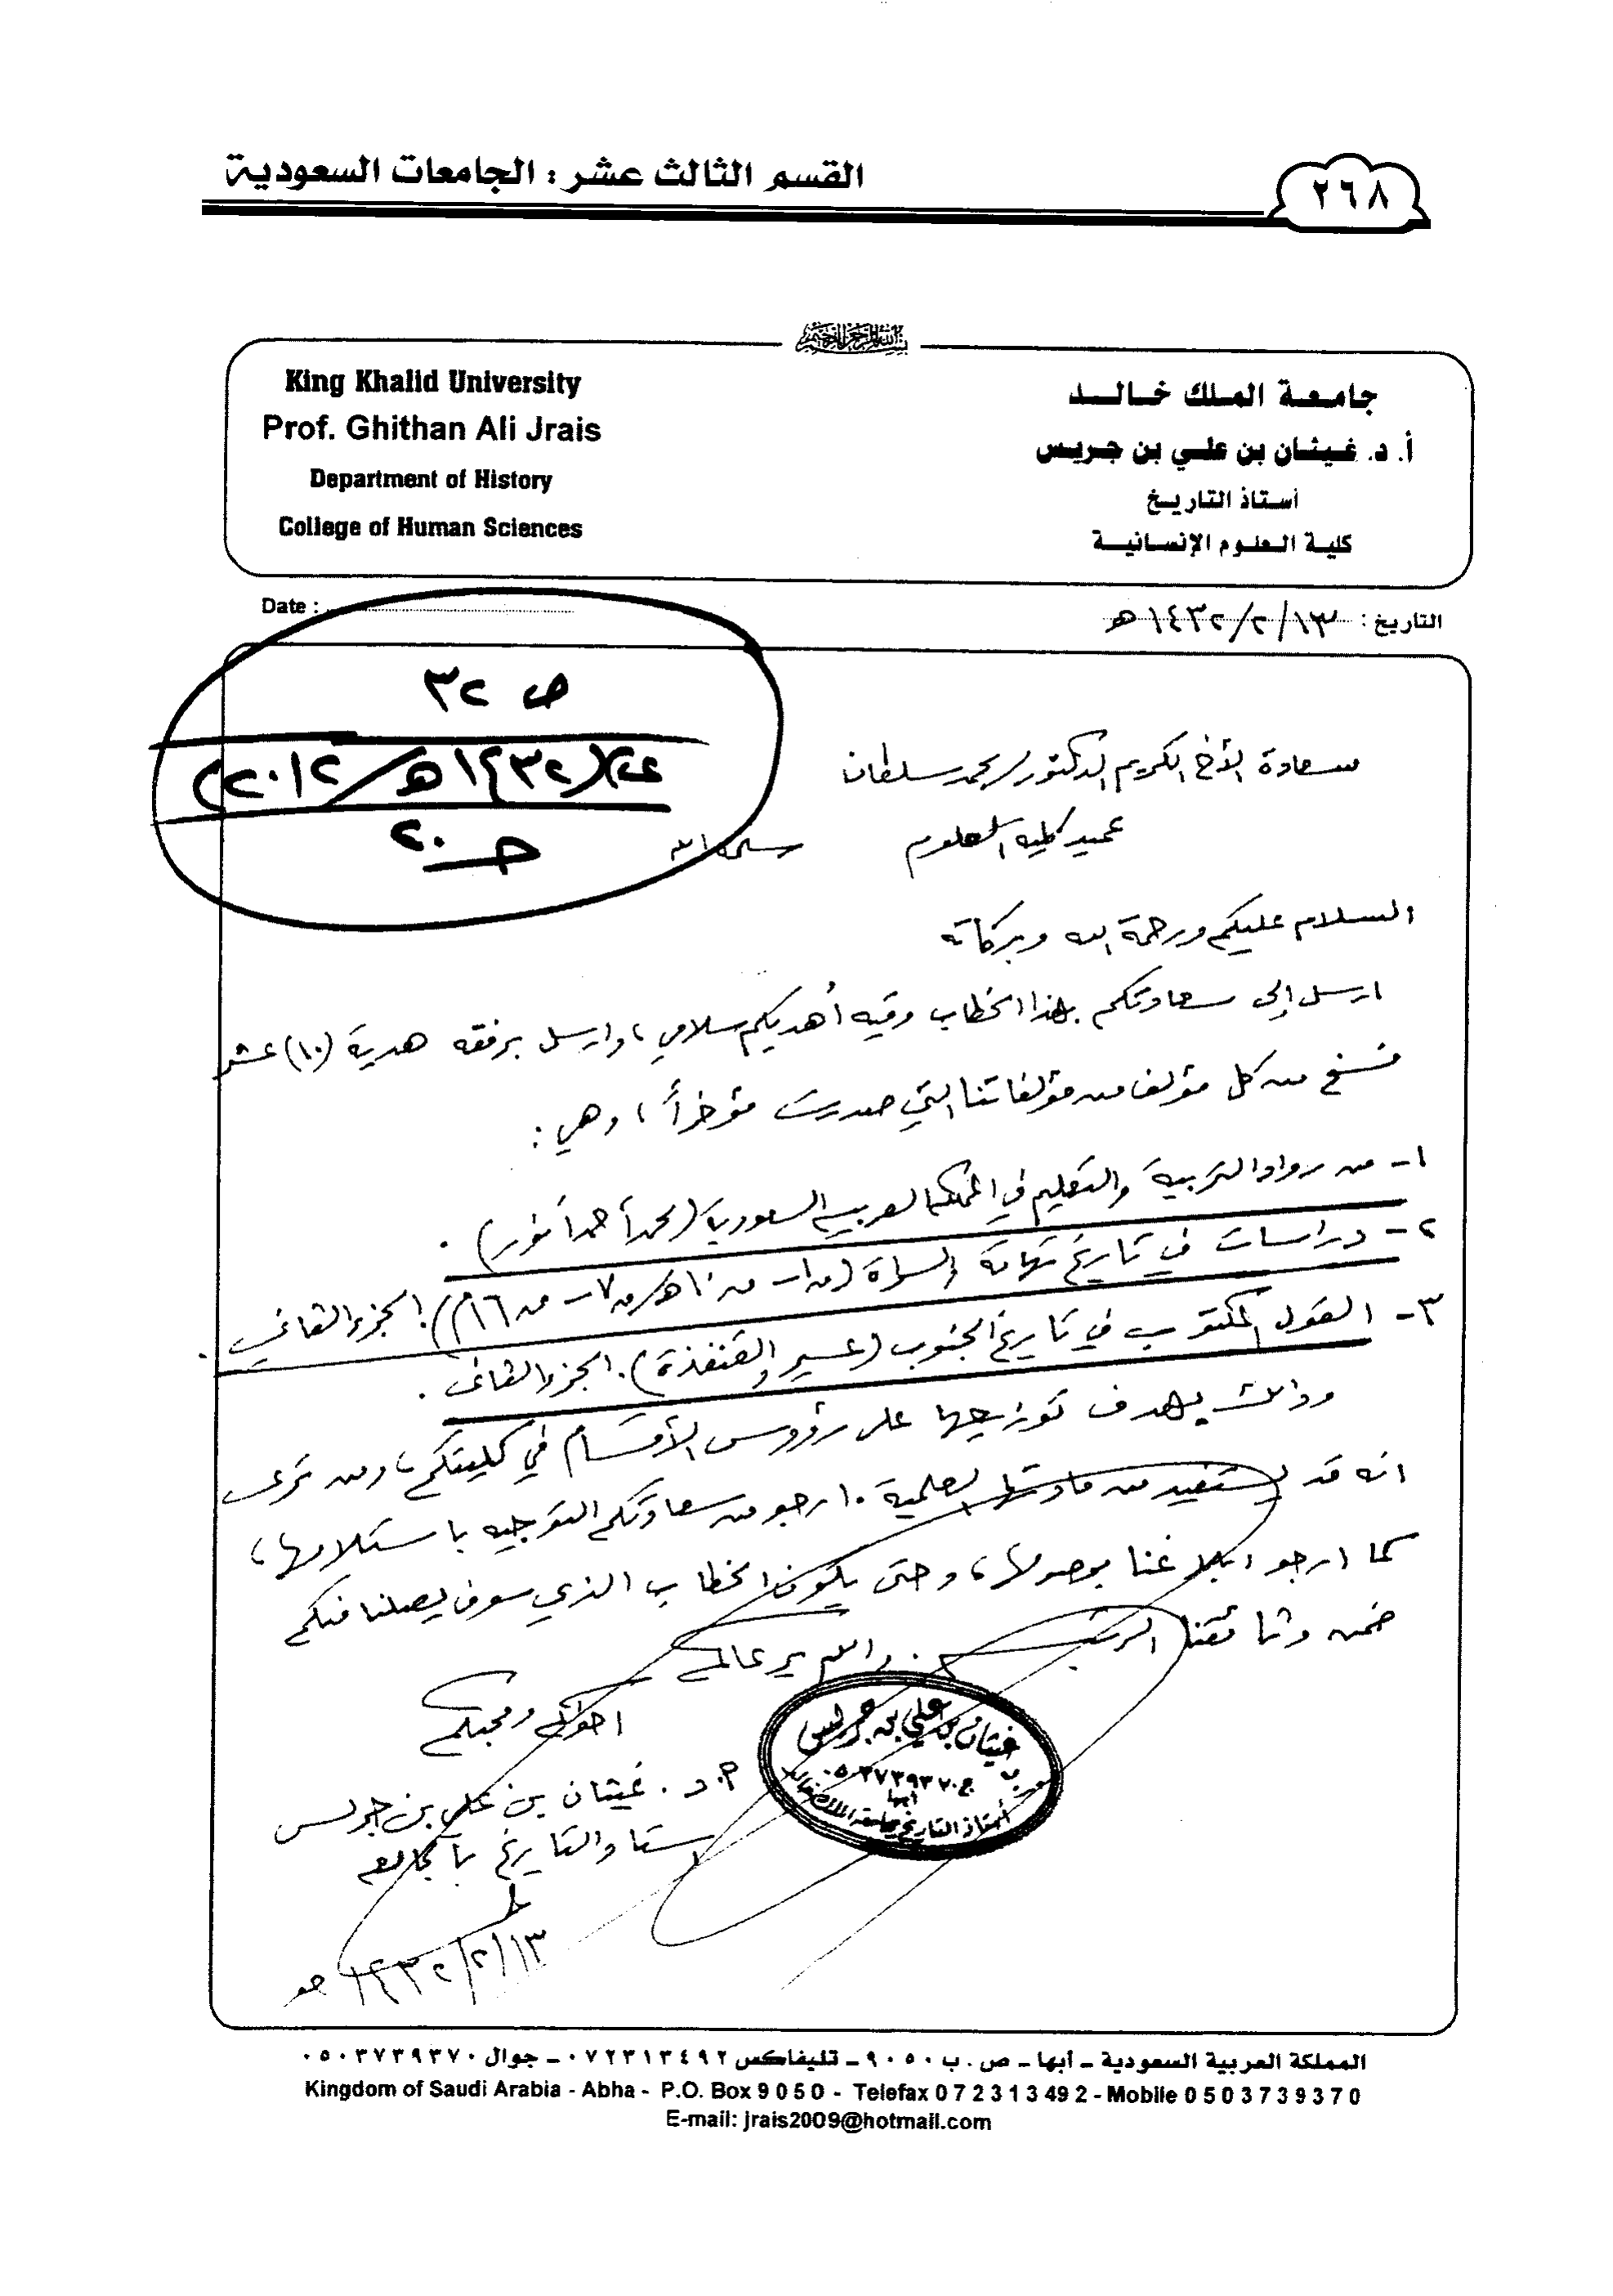 ٢٦٨
القسم الثالث عشر : الجامعات السعودية
بسم الله الرحمن الرحيم
جامعة الملك خالد
أ. د. غيثان بن علي بن جريس
أستاذ التاريخ
كلية العلوم الإنسانية
King Khalid University
Prof. Ghithan Ali Jrais
Department of History
College of Human Sciences
التاريخ : ١٤٣٢/٢/١٣هـ
Date :
ص ٣٢
(١٤٣٢هـ/٢٠١٢)
جـ ٢٠
سعادة الأخ الكريم الدكتور/ محمد سلطان
عميد كلية العلوم سلمه الله
السلام عليكم ورحمة الله وبركاته
ارسل إلى سعادتكم بهذا الخطاب وفيه أهديكم سلامي، وارسل برفقه هدية (١٠) عشر
نسخ من كل مؤلف من مؤلفاتنا التي صدرت مؤخراً، وهي :
١- من رواد التربية والتعليم في المملكة العربية السعودية (محمد أحمد أنور) .
٢- دراسات في تاريخ تهامة والسراة (ق١ - ق١٠هـ/ق٧ - ق١٦م). الجزء الثاني .
٣- القول المكتوب في تاريخ الجنوب (عسير والقنفذة). الجزء الثاني .
وذلك بهدف توزيعها على رؤوس الأقسام في كليتكم، ومن ترى
انه قد يستفيد من مادتها العلمية . ارجو من سعادتكم التوجيه باستلامها،
كما ارجو ابلاغنا بوصولها، وحتى يكون الخطاب الذي سوف يصلنا منكم
ضمن وثائقنا الرسمية . والله يرعاكم
اخوكم ومحبكم
أ. د. غيثان بن علي بن جريس
استاذ التاريخ بالجامعة
١٤٣٢/٢/١٣هـ
غيثان بن علي بن جريس
ج ٠٥٠٣٧٣٩٣٧٠
أبها
أستاذ التاريخ بجامعة الملك خالد
المملكة العربية السعودية - أبها - ص. ب ٩٠٥٠ - تليفاكس ٠٧٢٣١٣٤٩٢ - جوال ٠٥٠٣٧٣٩٣٧٠
Kingdom of Saudi Arabia - Abha - P.O. Box 9050 - Telefax 072313492 - Mobile 0503739370
E-mail: jrais2009@hotmail.com